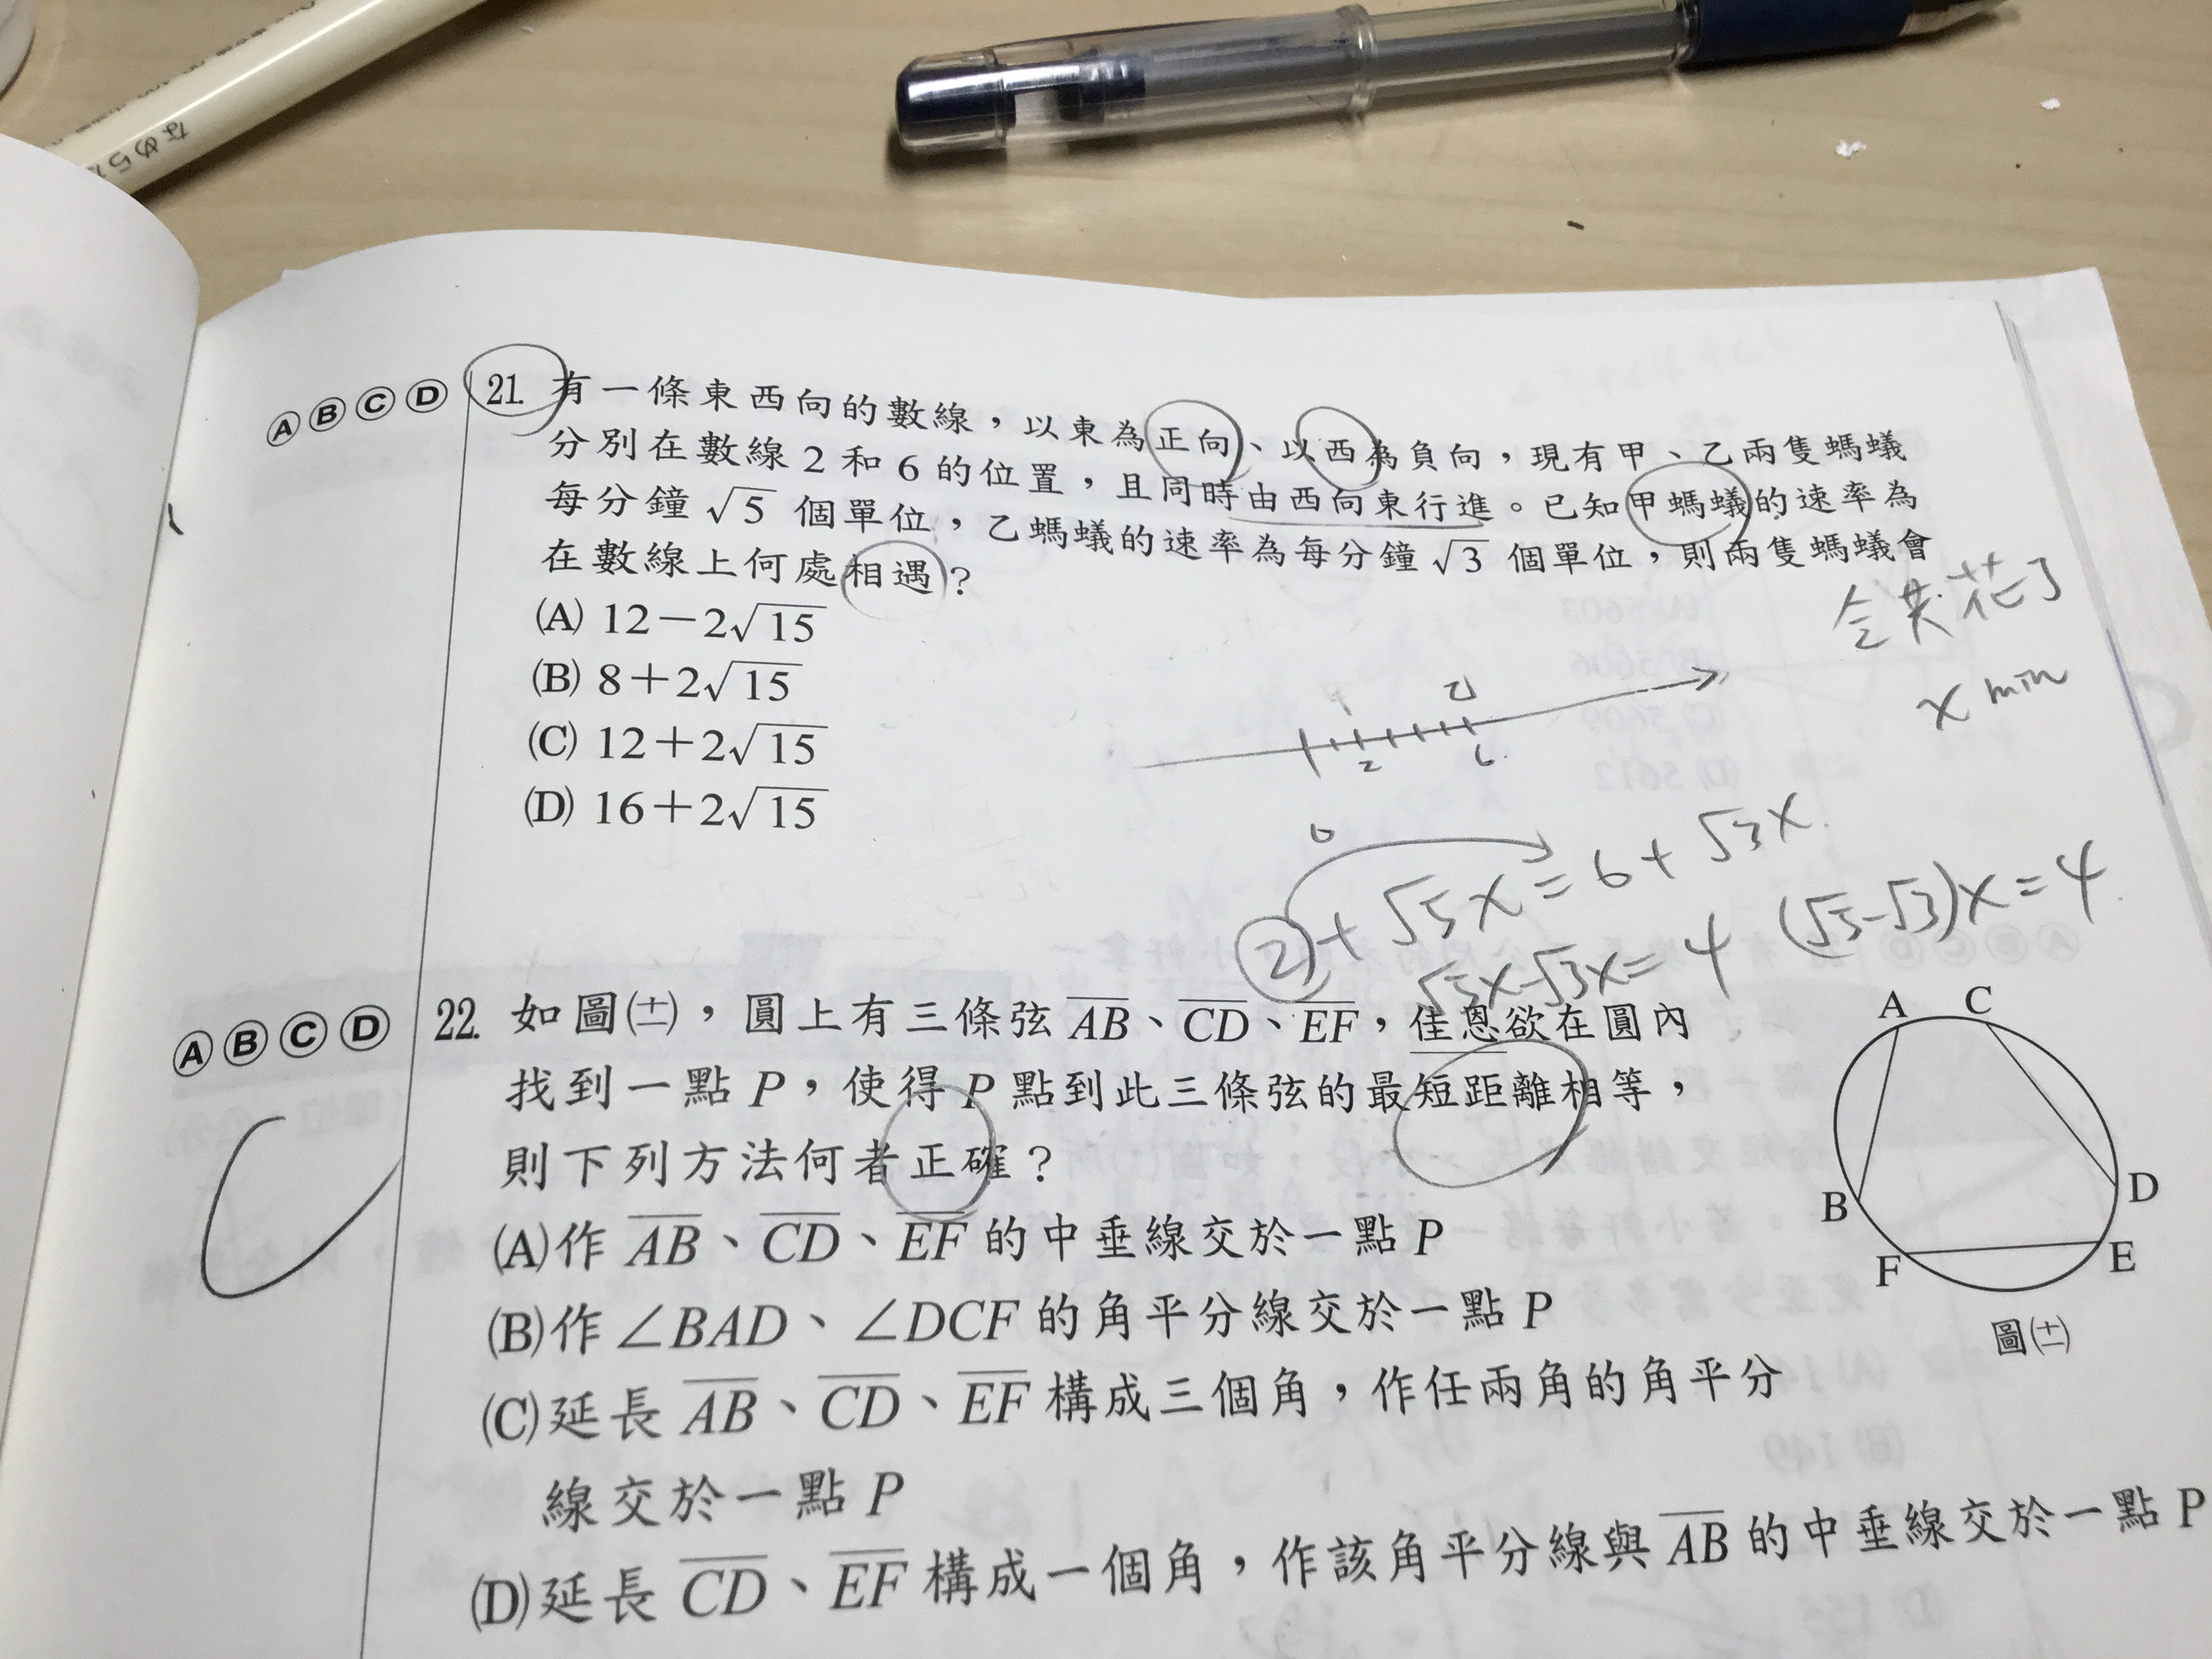 なめらか
Ⓐ Ⓑ Ⓒ Ⓓ 21. 有一條東西向的數線，以東為正向、以西為負向，現有甲、乙兩隻螞蟻
分別在數線 2 和 6 的位置，且同時由西向東行進。已知甲螞蟻的速率為
每分鐘 √5 個單位，乙螞蟻的速率為每分鐘 √3 個單位，則兩隻螞蟻會
在數線上何處相遇？
(A) 12－2√15
(B) 8＋2√15
(C) 12＋2√15
(D) 16＋2√15
令共花了
x min
乙
2 6
2 + √5x = 6 + √3x
√5x - √3x = 4 (√5-√3)x = 4
Ⓐ Ⓑ Ⓒ Ⓓ 22. 如圖(十二)，圓上有三條弦 AB、CD、EF，佳恩欲在圓內
找到一點 P，使得 P 點到此三條弦的最短距離相等，
則下列方法何者正確？
(A)作 AB、CD、EF 的中垂線交於一點 P
(B)作 ∠BAD、∠DCF 的角平分線交於一點 P
(C)延長 AB、CD、EF 構成三個角，作任兩角的角平分
線交於一點 P
(D)延長 CD、EF 構成一個角，作該角平分線與 AB 的中垂線交於一點 P
A C
B D
F E
圖(十二)